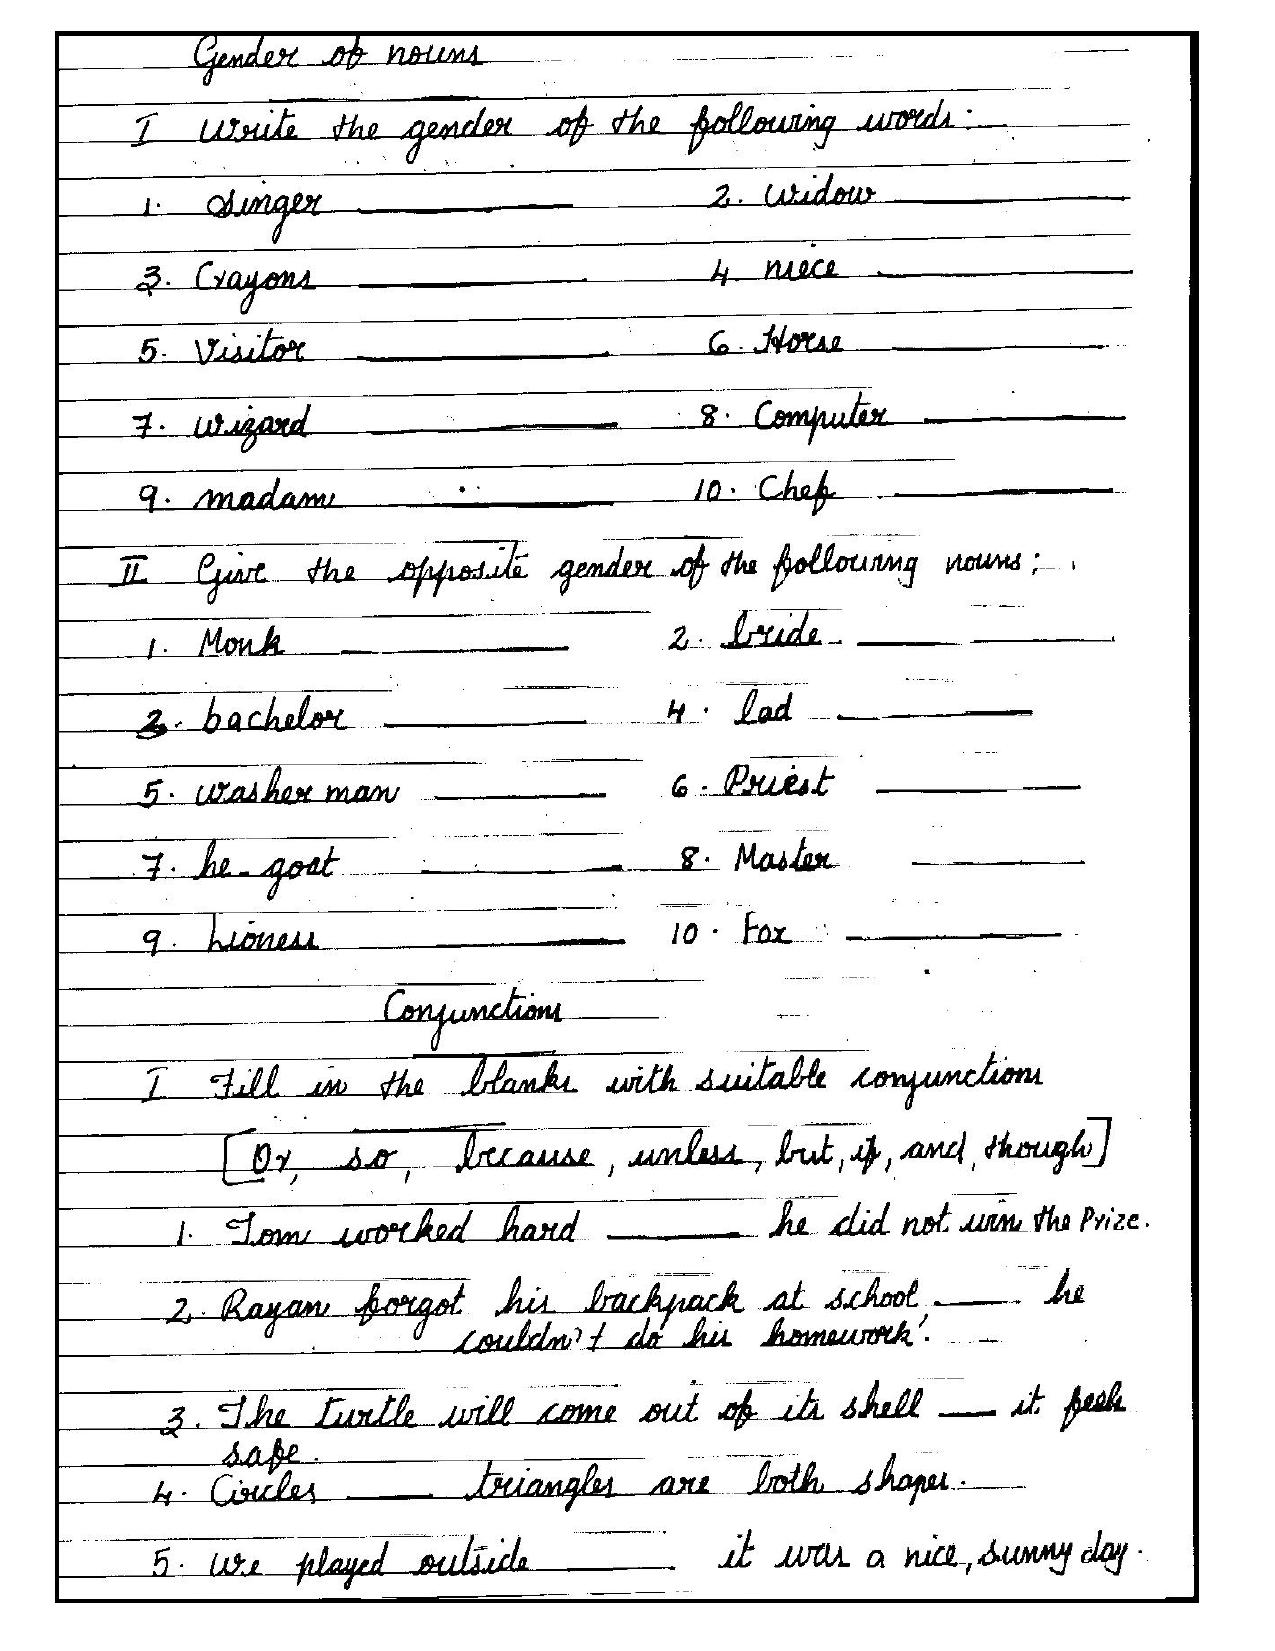 Gender of nouns
I Write the gender of the following words:
1. Singer ________ 2. Widow ________
3. Crayons ________ 4 niece ________
5. Visitor ________ 6. Horse ________
7. wizard ________ 8. Computer ________
9. madam ________ 10. Chef ________
II Give the opposite gender of the following nouns:
1. Monk ________ 2. bride ________
3. bachelor ________ 4. lad ________
5. washer man ________ 6. Priest ________
7. he-goat ________ 8. Master ________
9. Lioness ________ 10. Fox ________
Conjunctions
I Fill in the blanks with suitable conjunctions
[Or, so, because, unless, but, if, and, though]
1. Tom worked hard ________ he did not win the Prize.
2. Rayan forgot his backpack at school ____ he
couldn't do his homework.
3. The turtle will come out of its shell ____ it feels
safe.
4. Circles ____ triangles are both shapes.
5. We played outside ________ it was a nice, sunny day.